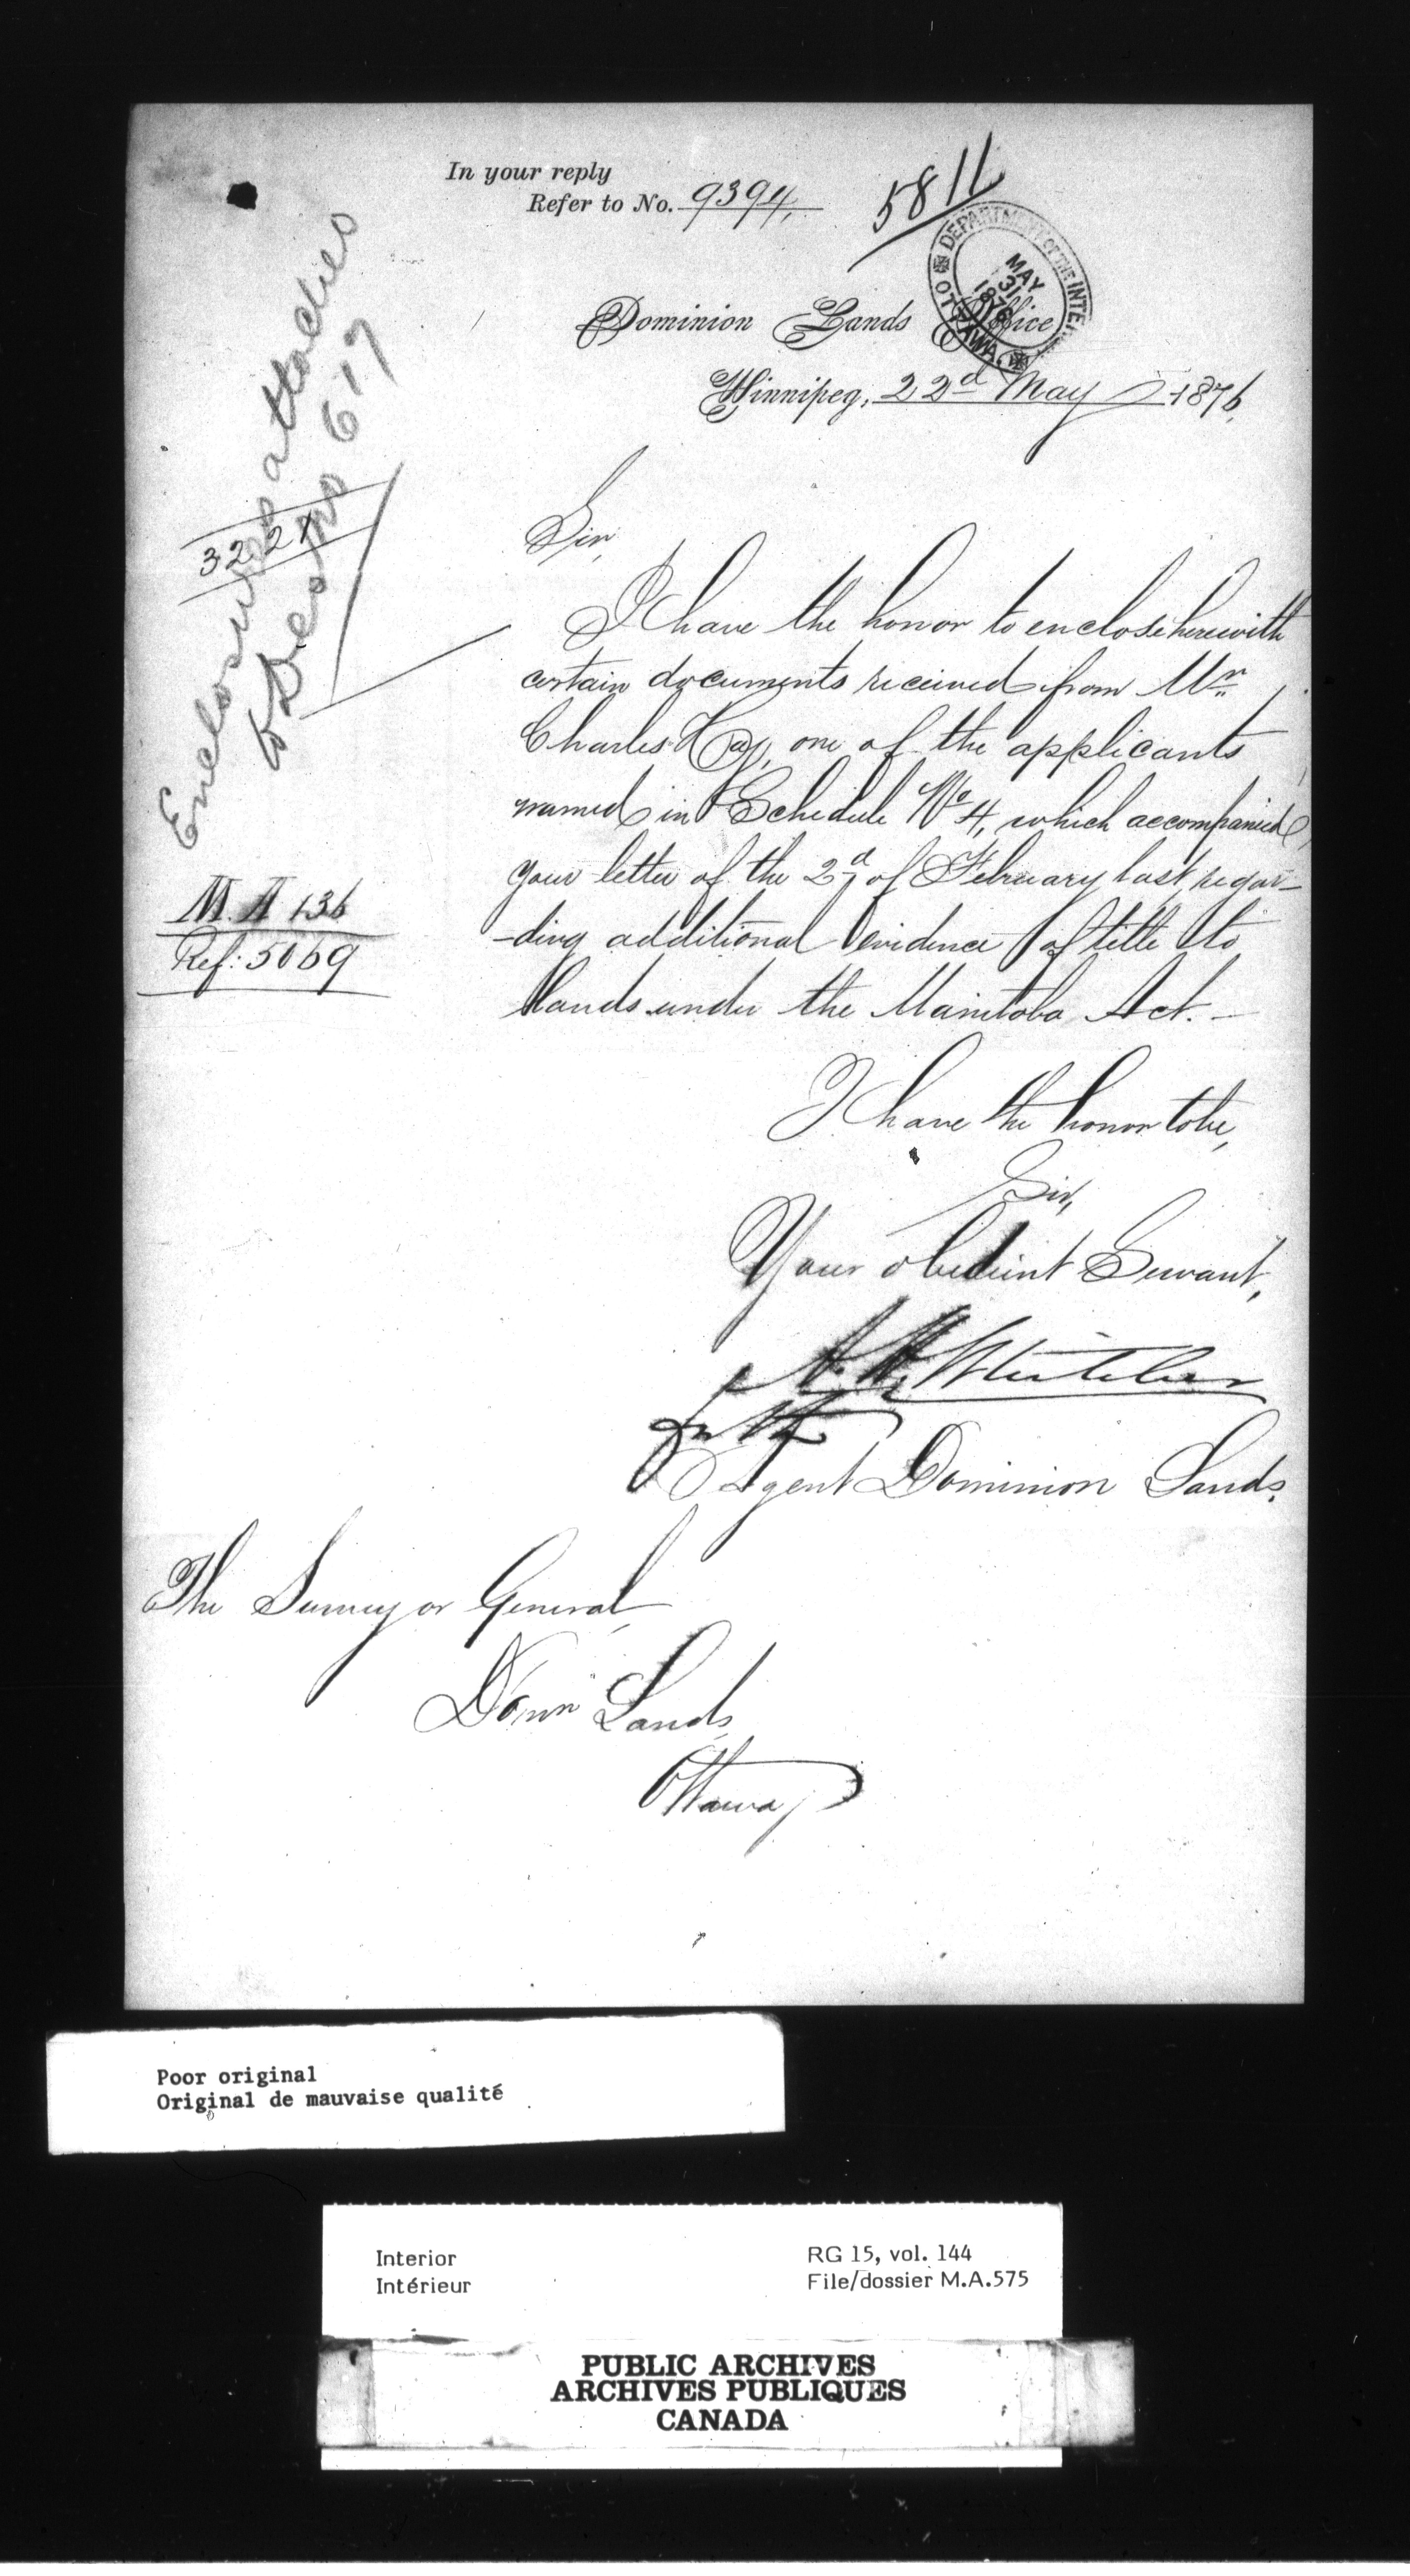 In your reply
Refer to No. 9394,
5811
DEPARTMENT OF THE INTE
MAY
31
1876
OTTAWA.
Dominion Lands Office
Winnipeg, 22d May 1876
Enclosures attached
to Dec no 617
3221
M.A 136
Ref: 5069
Sir,
I have the honor to enclose herewith
certain documents received from Mr
Charles Hay, one of the applicants
named in Schedule No 4, which accompanied
your letter of the 2d of February last, regar-
-ding additional evidence of title to
lands under the Manitoba Act.-
I have the honor to be,
Sir,
Your obedient Servant,
Agent Dominion Lands.
The Surveyor General,
Domn Lands,
Ottawa
Poor original
Original de mauvaise qualité
Interior
Intérieur
RG 15, vol. 144
File/dossier M.A.575
PUBLIC ARCHIVES
ARCHIVES PUBLIQUES
CANADA